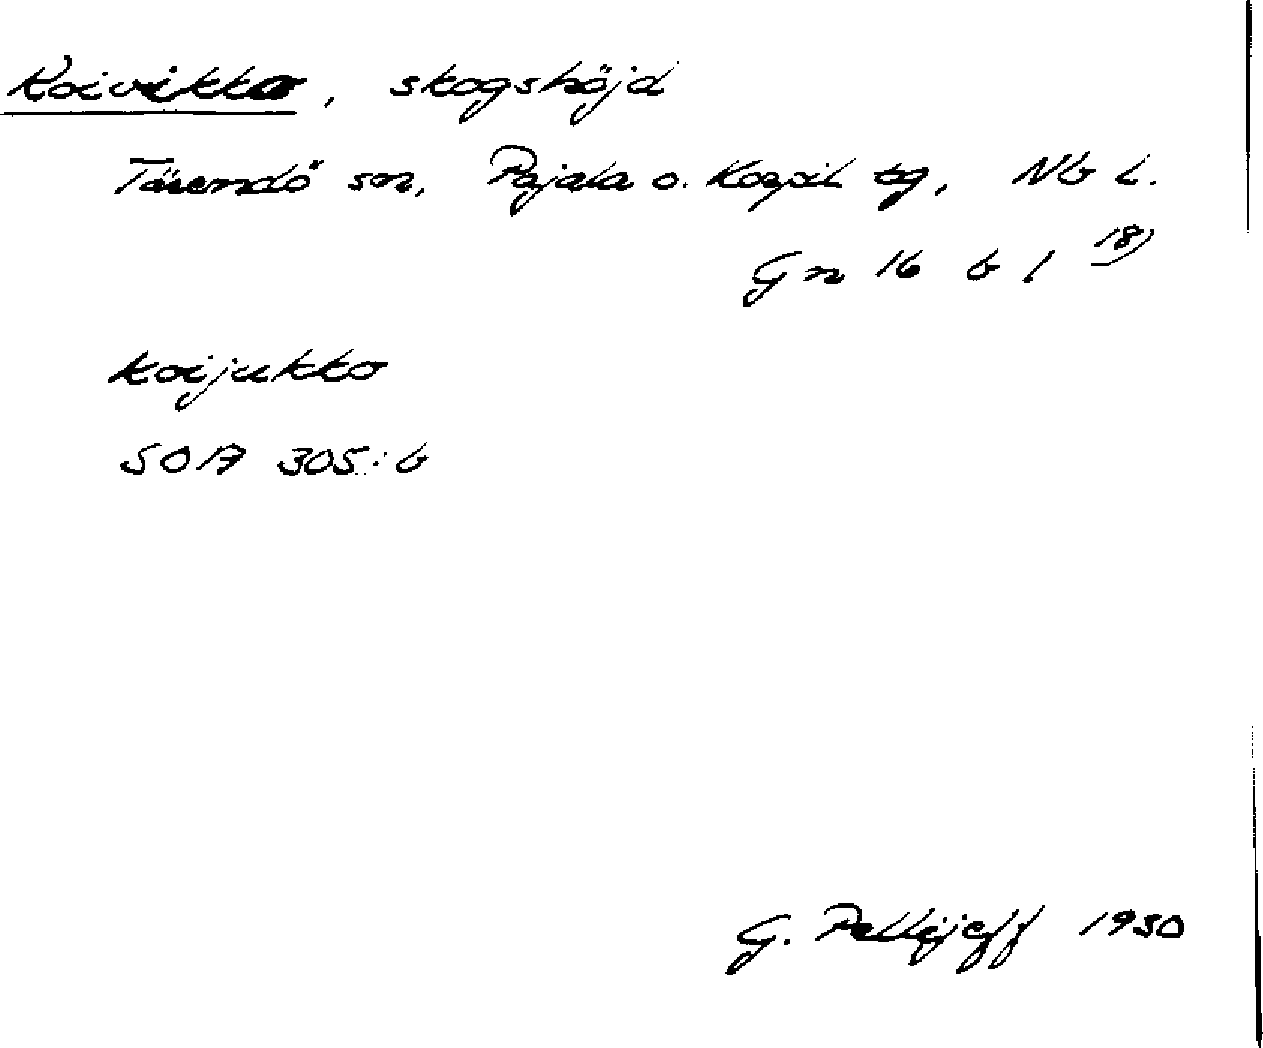 Koivikko, skogshöjd
Tärendö sn, Pajala o. Korpil tg, Nb L.
Gn 16 b 1 18)
koijukko
SOA 305:b
G. Pellijeff 1950